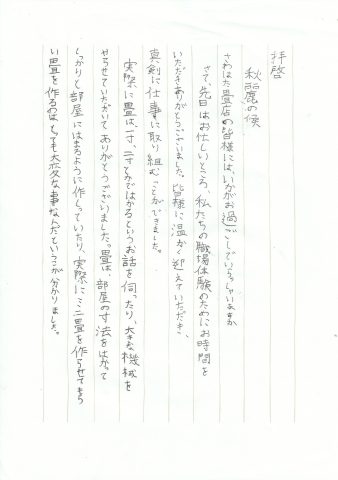 拝啓
秋麗の候
さわはた畳店の皆様には、いかがお過ごしでいらっしゃいますか
さて、先日はお忙しいところ、私たちの職場体験のためにお時間を
いただきありがとうございました。皆様に温かく迎えていただき、
真剣に仕事に取り組むことができました。
実際に畳は、一寸、二寸とかではかるというお話を伺ったり、大きな機械を
やらせていただいてありがとうございました。畳は、部屋の寸法をはかって
しっかりと部屋にはまるように作っていたり、実際にミニ畳を作らせてもら
い畳を作るのは、とっても大変な事なんだということが分かりました。